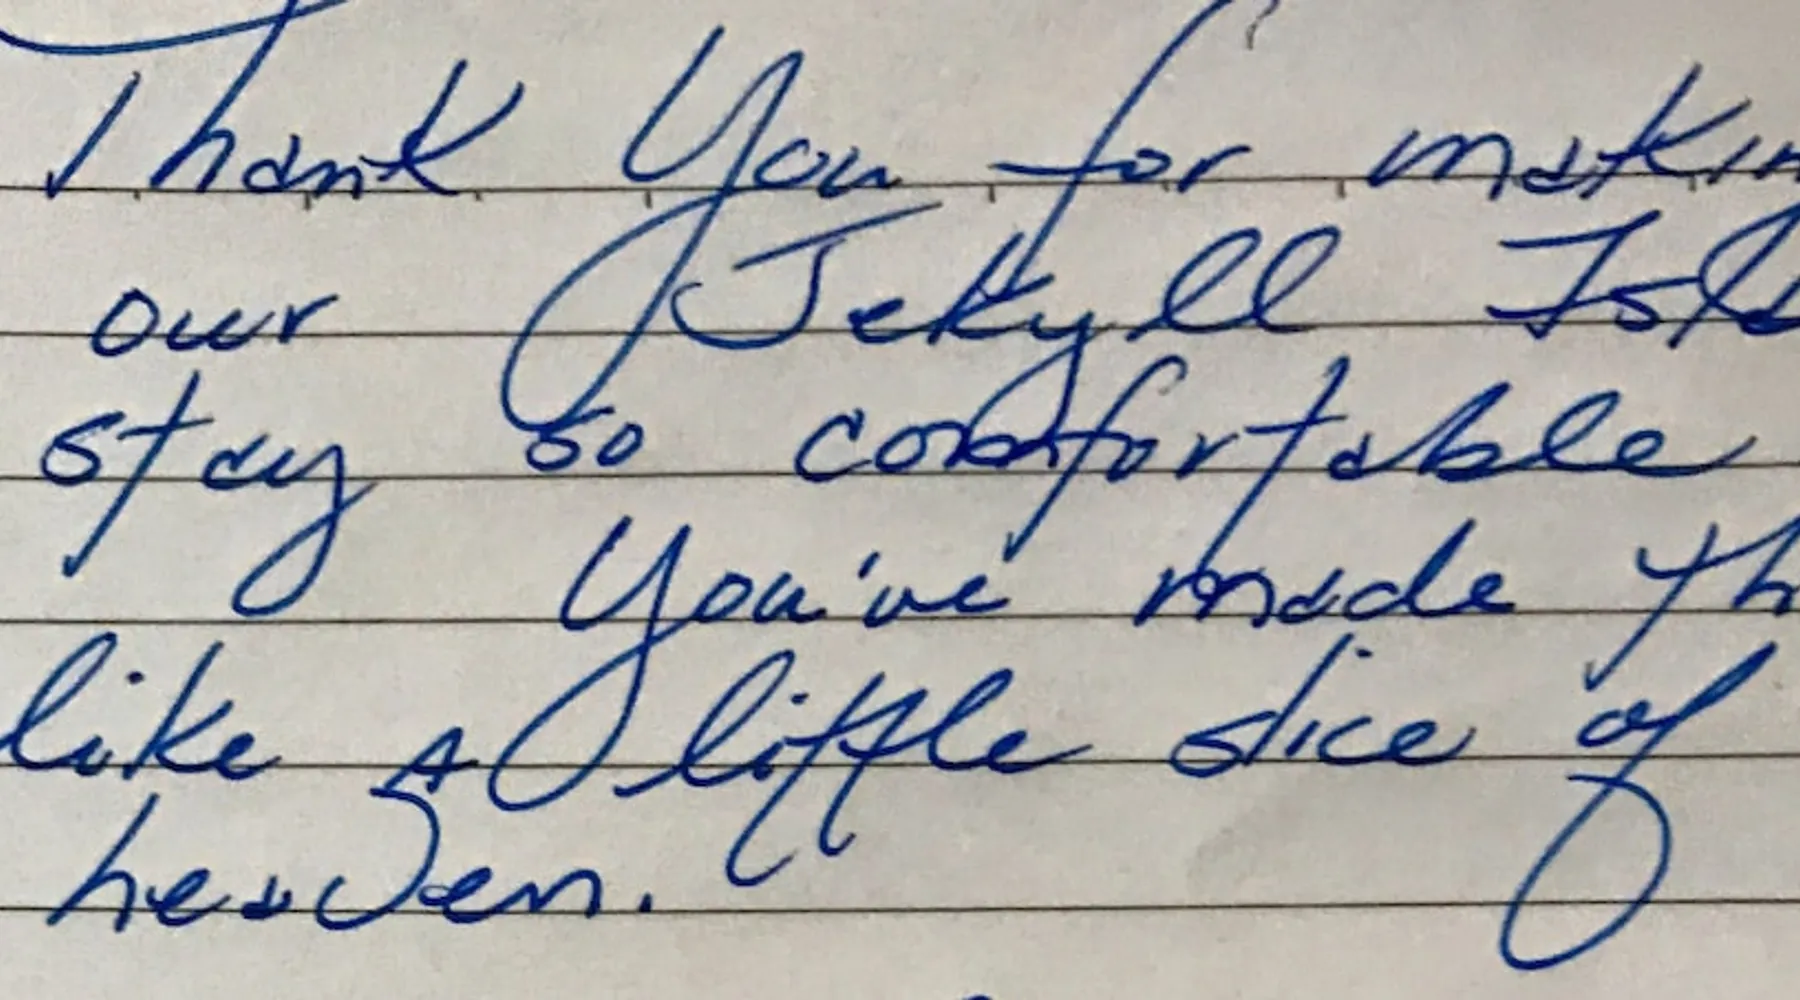 Thank You for makin
our Jekyll Isla
stay so comfortable
You've made th
like A little slice of
heaven.